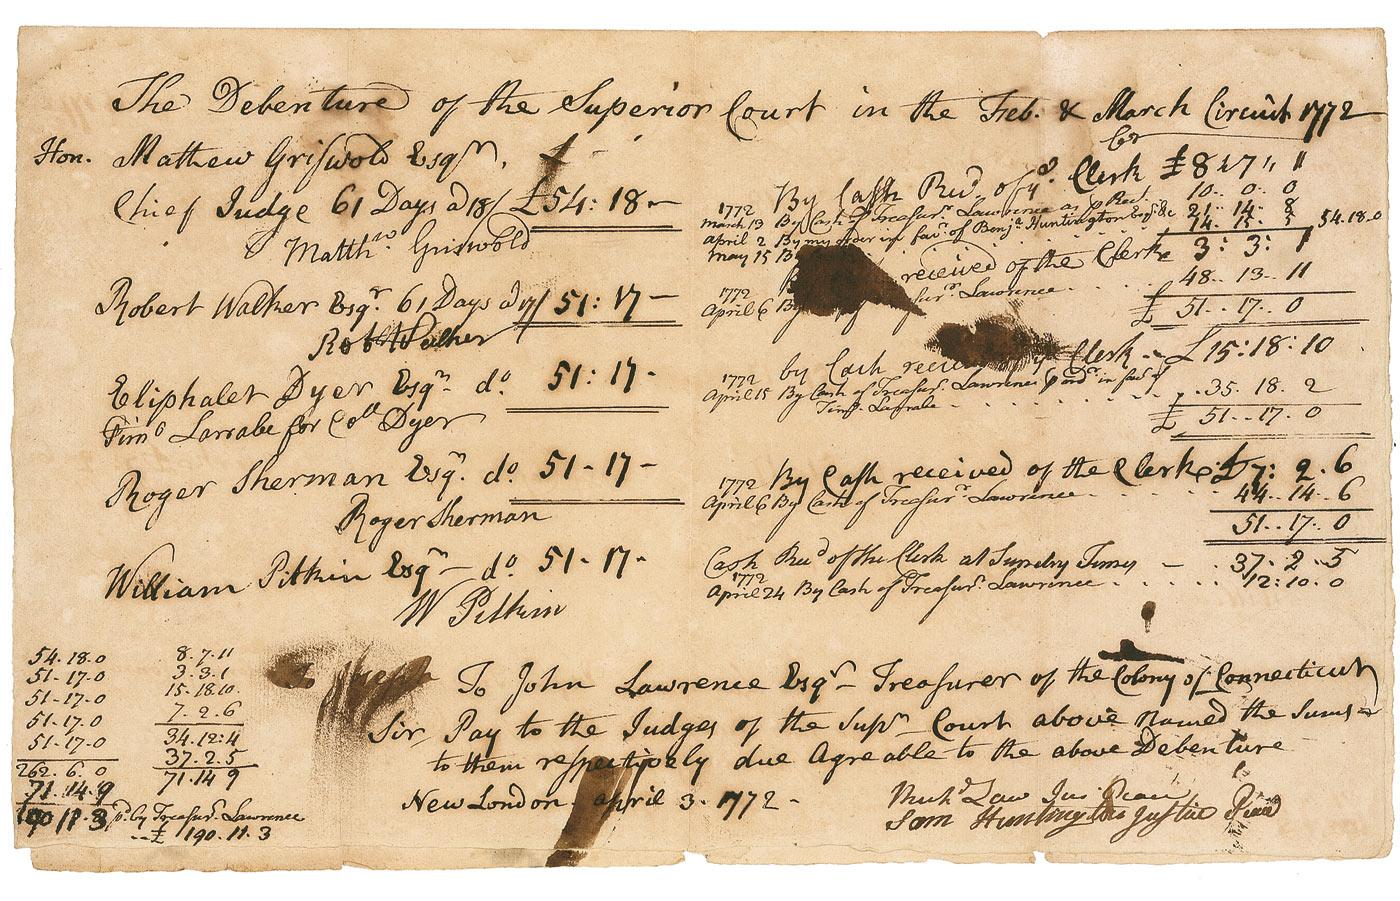 The Debenture of the Superior Court in the Feb. & March Circuit 1772
Hon. Mathew Griswold Esqr. £
Chief Judge 61 Days @ 18/ £54:18-
Matthw Griswold
Cr
By Cash Recd. of ye. Clerk £8 " 7 " 11
1772
March 13 By Cash of Treasurr. Lawrence as Recd. 10. 0. 0
April 2 By my order in favr. of Benja. Huntington Esqr. &c 21. 14. 8
May 15 By 14. 15. 5 54.18.0
Robert Walker Esqr. 61 Days @ 17/ 51:17-
Robt Walker
received of the Clerk 3: 3: 1
1772
April 6 By Lawrence 48. 13. 11
£ 51. 17. 0
Eliphalet Dyer Esqr. do. 51:17-
Timo Larrabe for Coll Dyer
by Cash Clerk - £15:18:10
1772
April 15 By Cash of Treasurr. Lawrence pr. ordr. in favr. of
Timy. Larrabe 35. 18. 2
£ 51. 17. 0
Roger Sherman Esqr. do. 51-17-
Roger Sherman
By Cash received of the Clerk £7: 2. 6
1772
April 6 By Cash of Treasurr. Lawrence 44. 14. 6
51. 17. 0
William Pitkin Esqr do. 51-17-
W Pitkin
Cash Recd of the Clerk at Sundry Times - 37. 2. 5
1772
April 24 By Cash of Treasurr. Lawrence 12:10. 0
54. 18. 0
51. 17. 0
51. 17. 0
51. 17. 0
51. 17. 0
262. 6. 0
71. 14. 9
190 11. 3
8. 7. 11
3. 3. 1
15. 18 10.
7. 2. 6
34. 12:4
37. 2. 5
71. 14 9
pd. by Treasurr. Lawrence
£ 190. 11. 3
To John Lawrence Esqr Treasurer of the Colony of Connecticut
Sir Pay to the Judges of the Supr Court above named the Sums
to them respectively due Agreable to the above Debenture
New London April 3. 1772 -
Richd Law Jus Peace
Sam Huntington Justice Peace